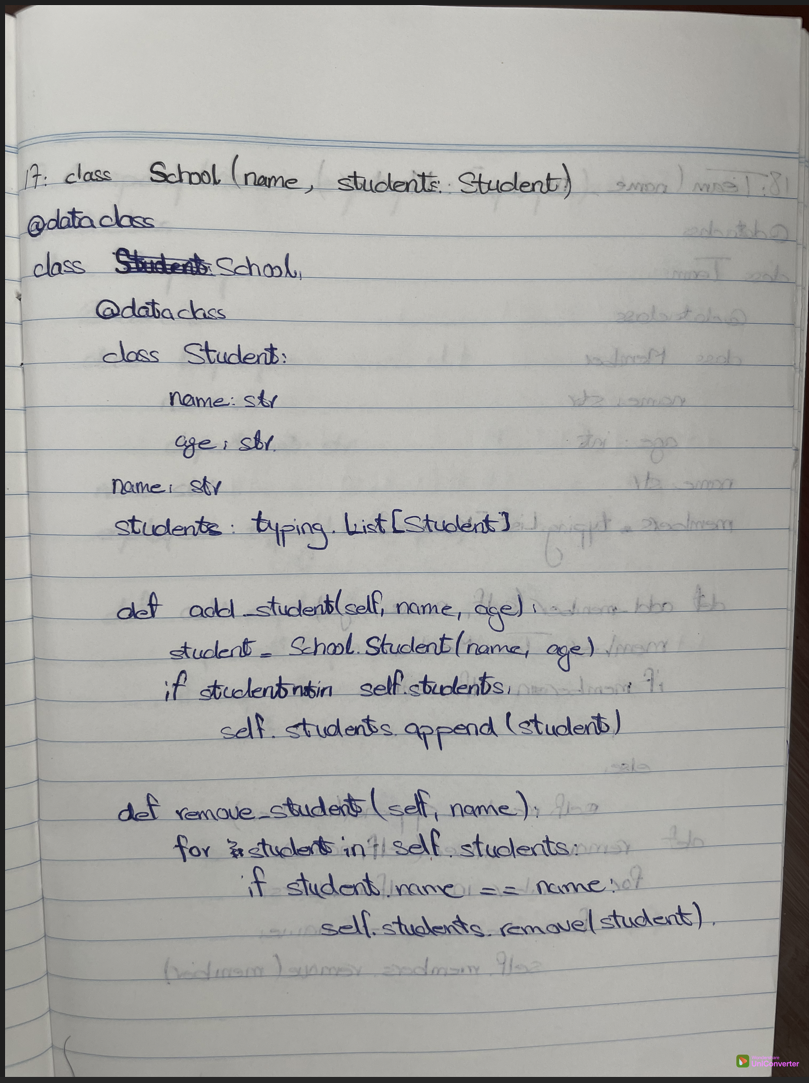 17: class School (name, students: Student)
@dataclass
class School:
@dataclass
class Student:
name: str
age: str
name: str
students: typing.List[Student]
def add_student(self, name, age):
student = School.Student(name, age)
if student not in self.students:
self.students.append(student)
def remove_student(self, name):
for student in self.students:
if student.name == name:
self.students.remove(student).